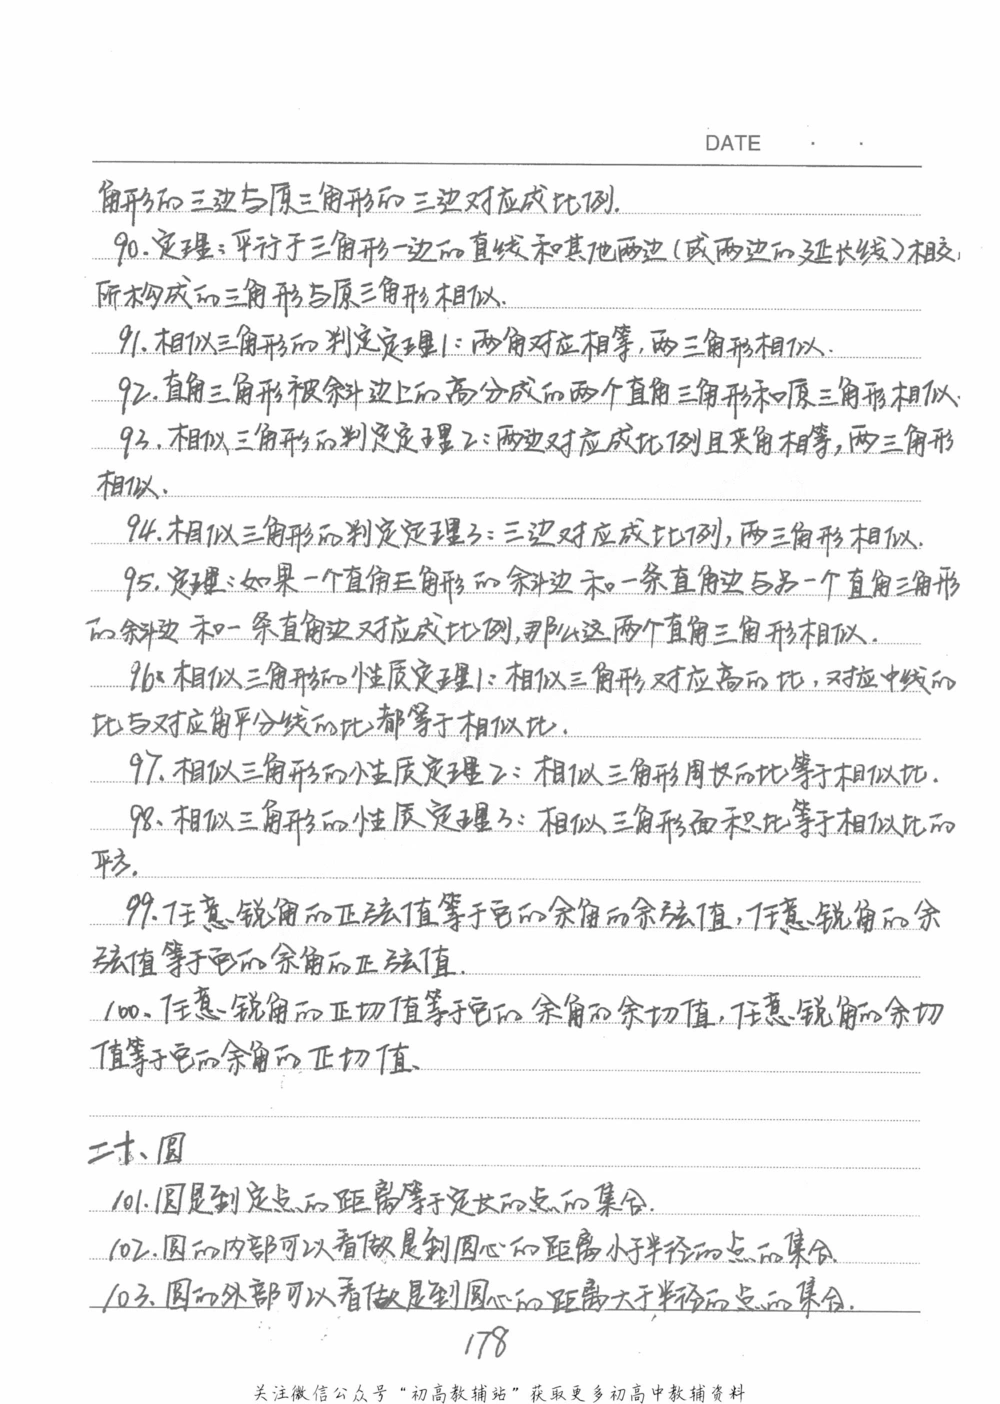 DATE · ·
角形的三边与原三角形的三边对应成比例.
90.定理:平行于三角形一边的直线和其他两边(或两边的延长线)相交,
所构成的三角形与原三角形相似.
91.相似三角形的判定定理1:两角对应相等,两三角形相似.
92.直角三角形被斜边上的高分成的两个直角三角形和原三角形相似.
93.相似三角形的判定定理2:两边对应成比例且夹角相等,两三角形
相似.
94.相似三角形的判定定理3:三边对应成比例,两三角形相似.
95.定理:如果一个直角三角形的斜边和一条直角边与另一个直角三角形
的斜边和一条直角边对应成比例,那么这两个直角三角形相似.
96.相似三角形的性质定理1:相似三角形对应高的比,对应中线的
比与对应角平分线的比都等于相似比.
97.相似三角形的性质定理2:相似三角形周长的比等于相似比.
98、相似三角形的性质定理3:相似三角形面积比等于相似比的
平方.
99.任意锐角的正弦值等于它的余角的余弦值,任意锐角的余
弦值等于它的余角的正弦值.
100、任意锐角的正切值等于它的余角的余切值,任意锐角的余切
值等于它的余角的正切值、
二十、圆
101.圆是到定点的距离等于定长的点的集合.
102.圆的内部可以看做是到圆心的距离小于半径的点的集合.
103、圆的外部可以看做是到圆心的距离大于半径的点的集合.
178
关注微信公众号“初高教辅站”获取更多初高中教辅资料